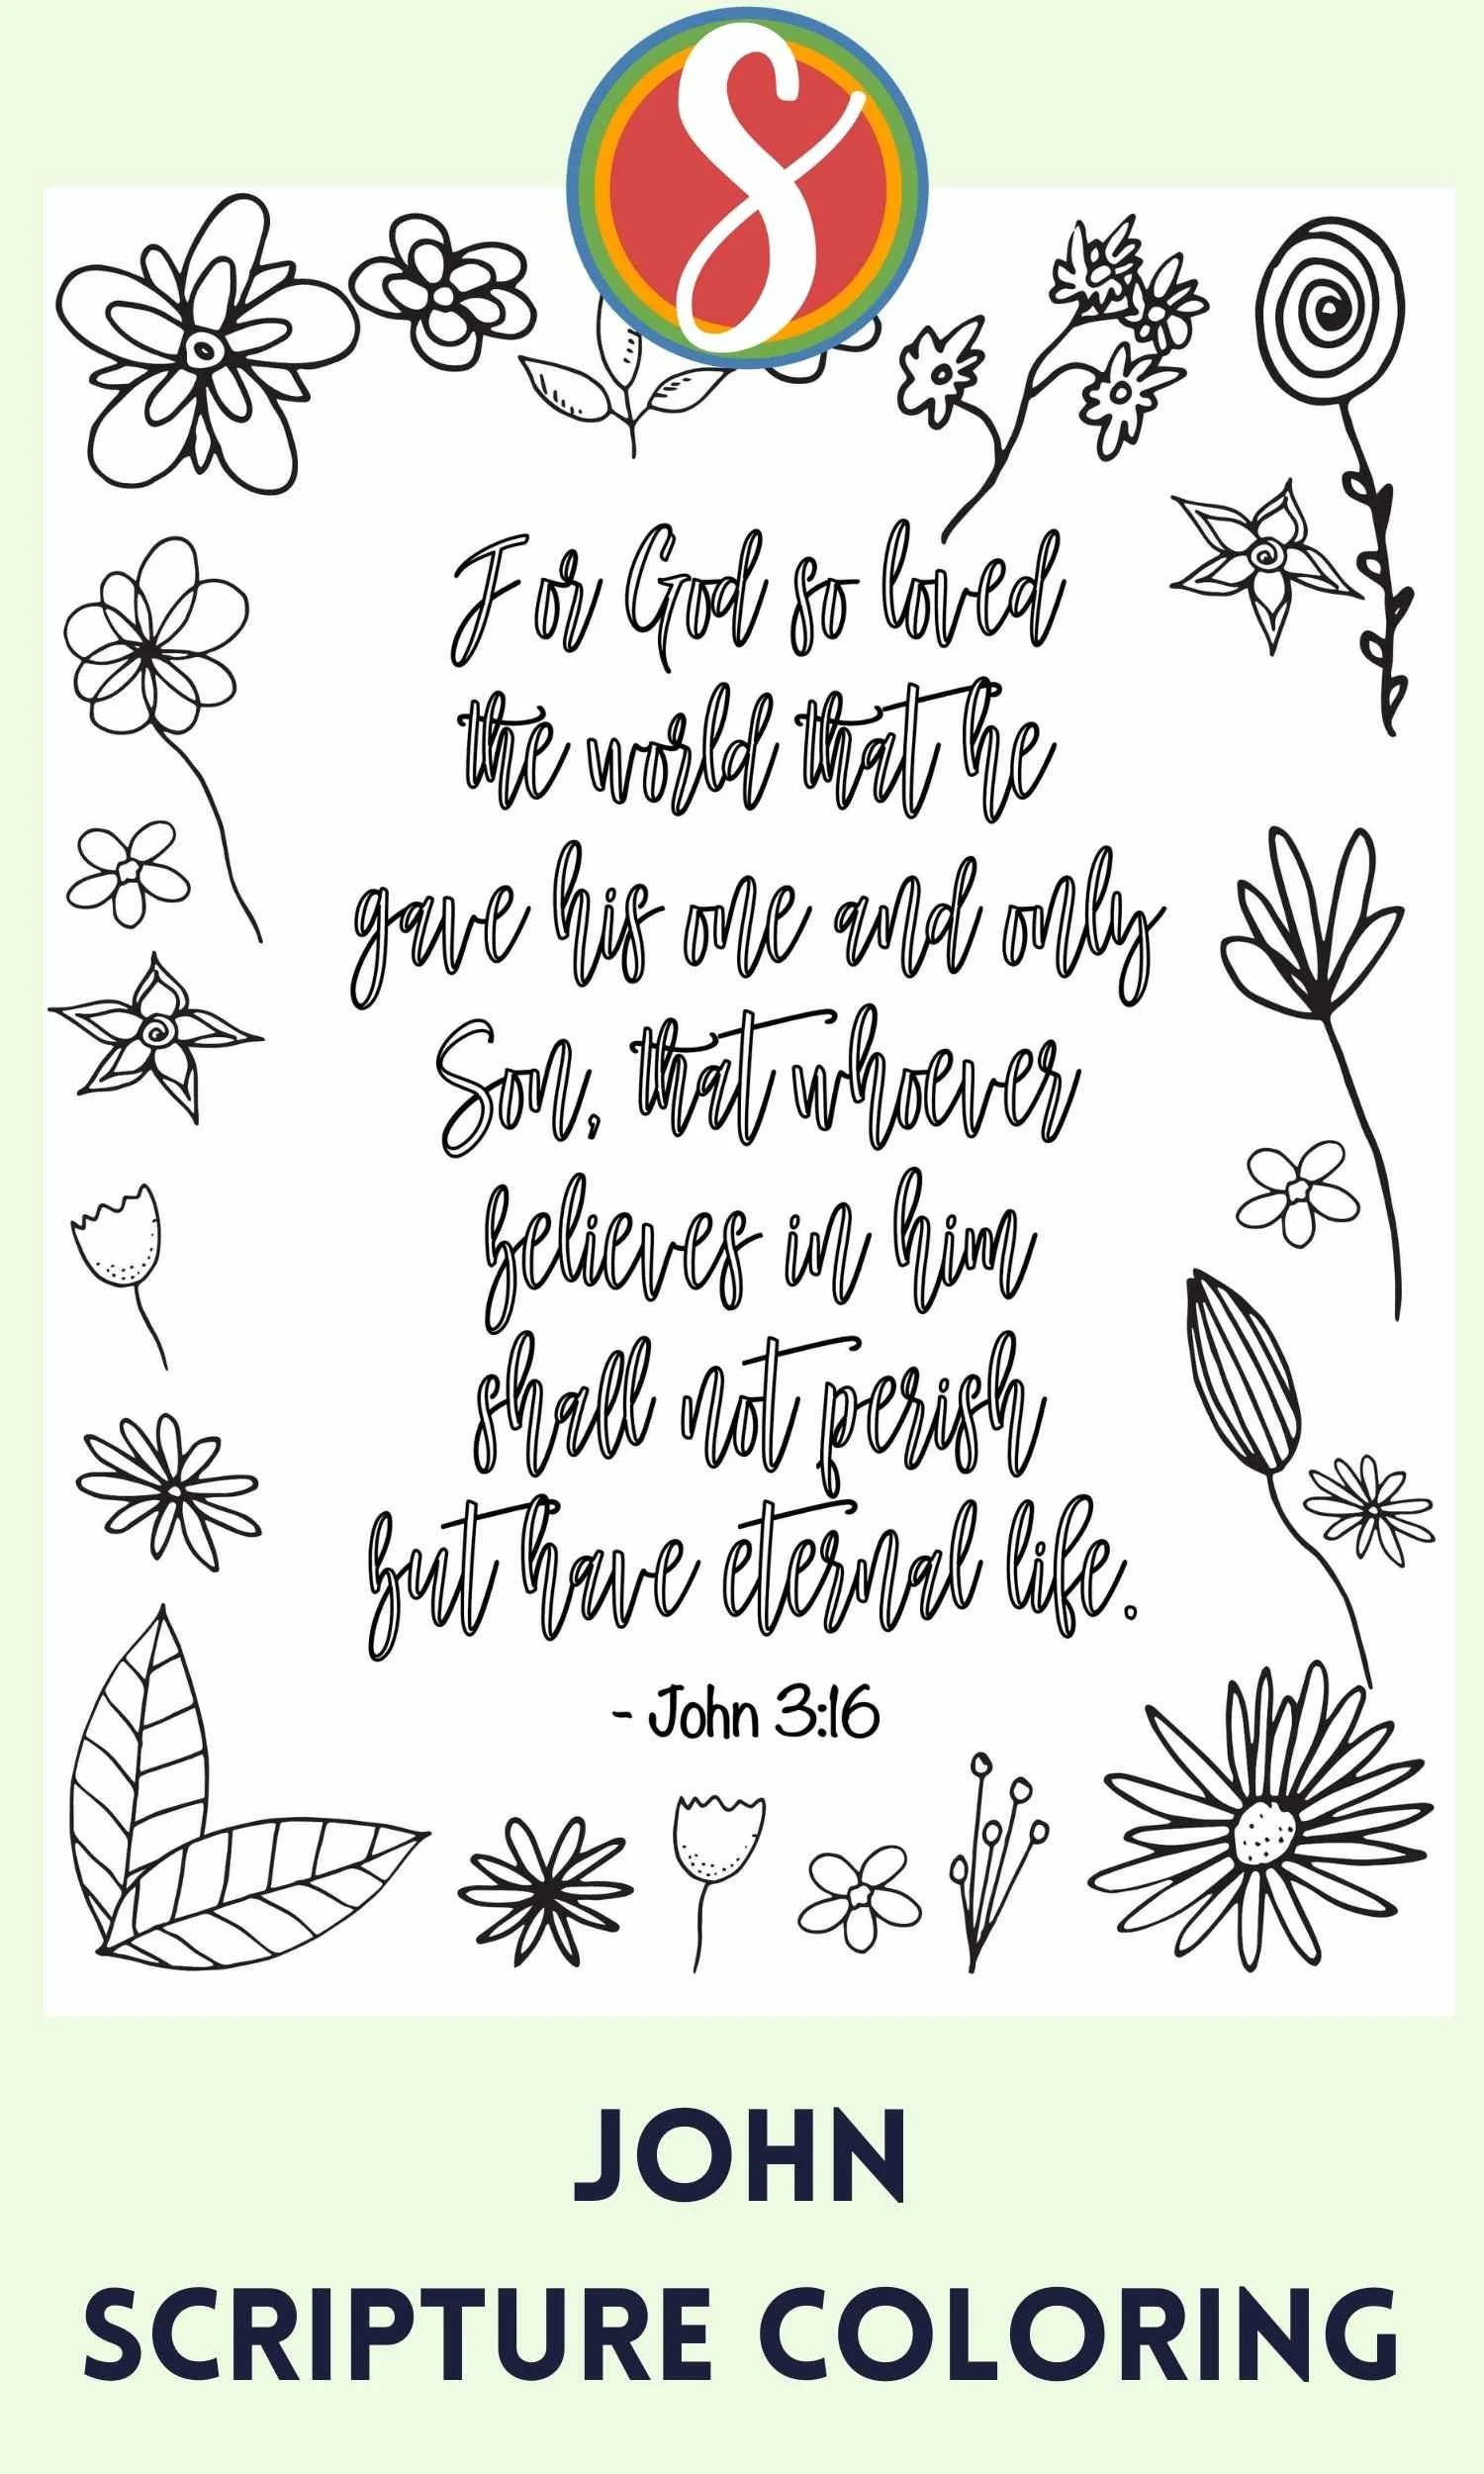 S
For God so loved
the world that he
gave his one and only
Son, that whoever
believes in him
shall not perish
but have eternal life.
- John 3:16
JOHN
SCRIPTURE COLORING